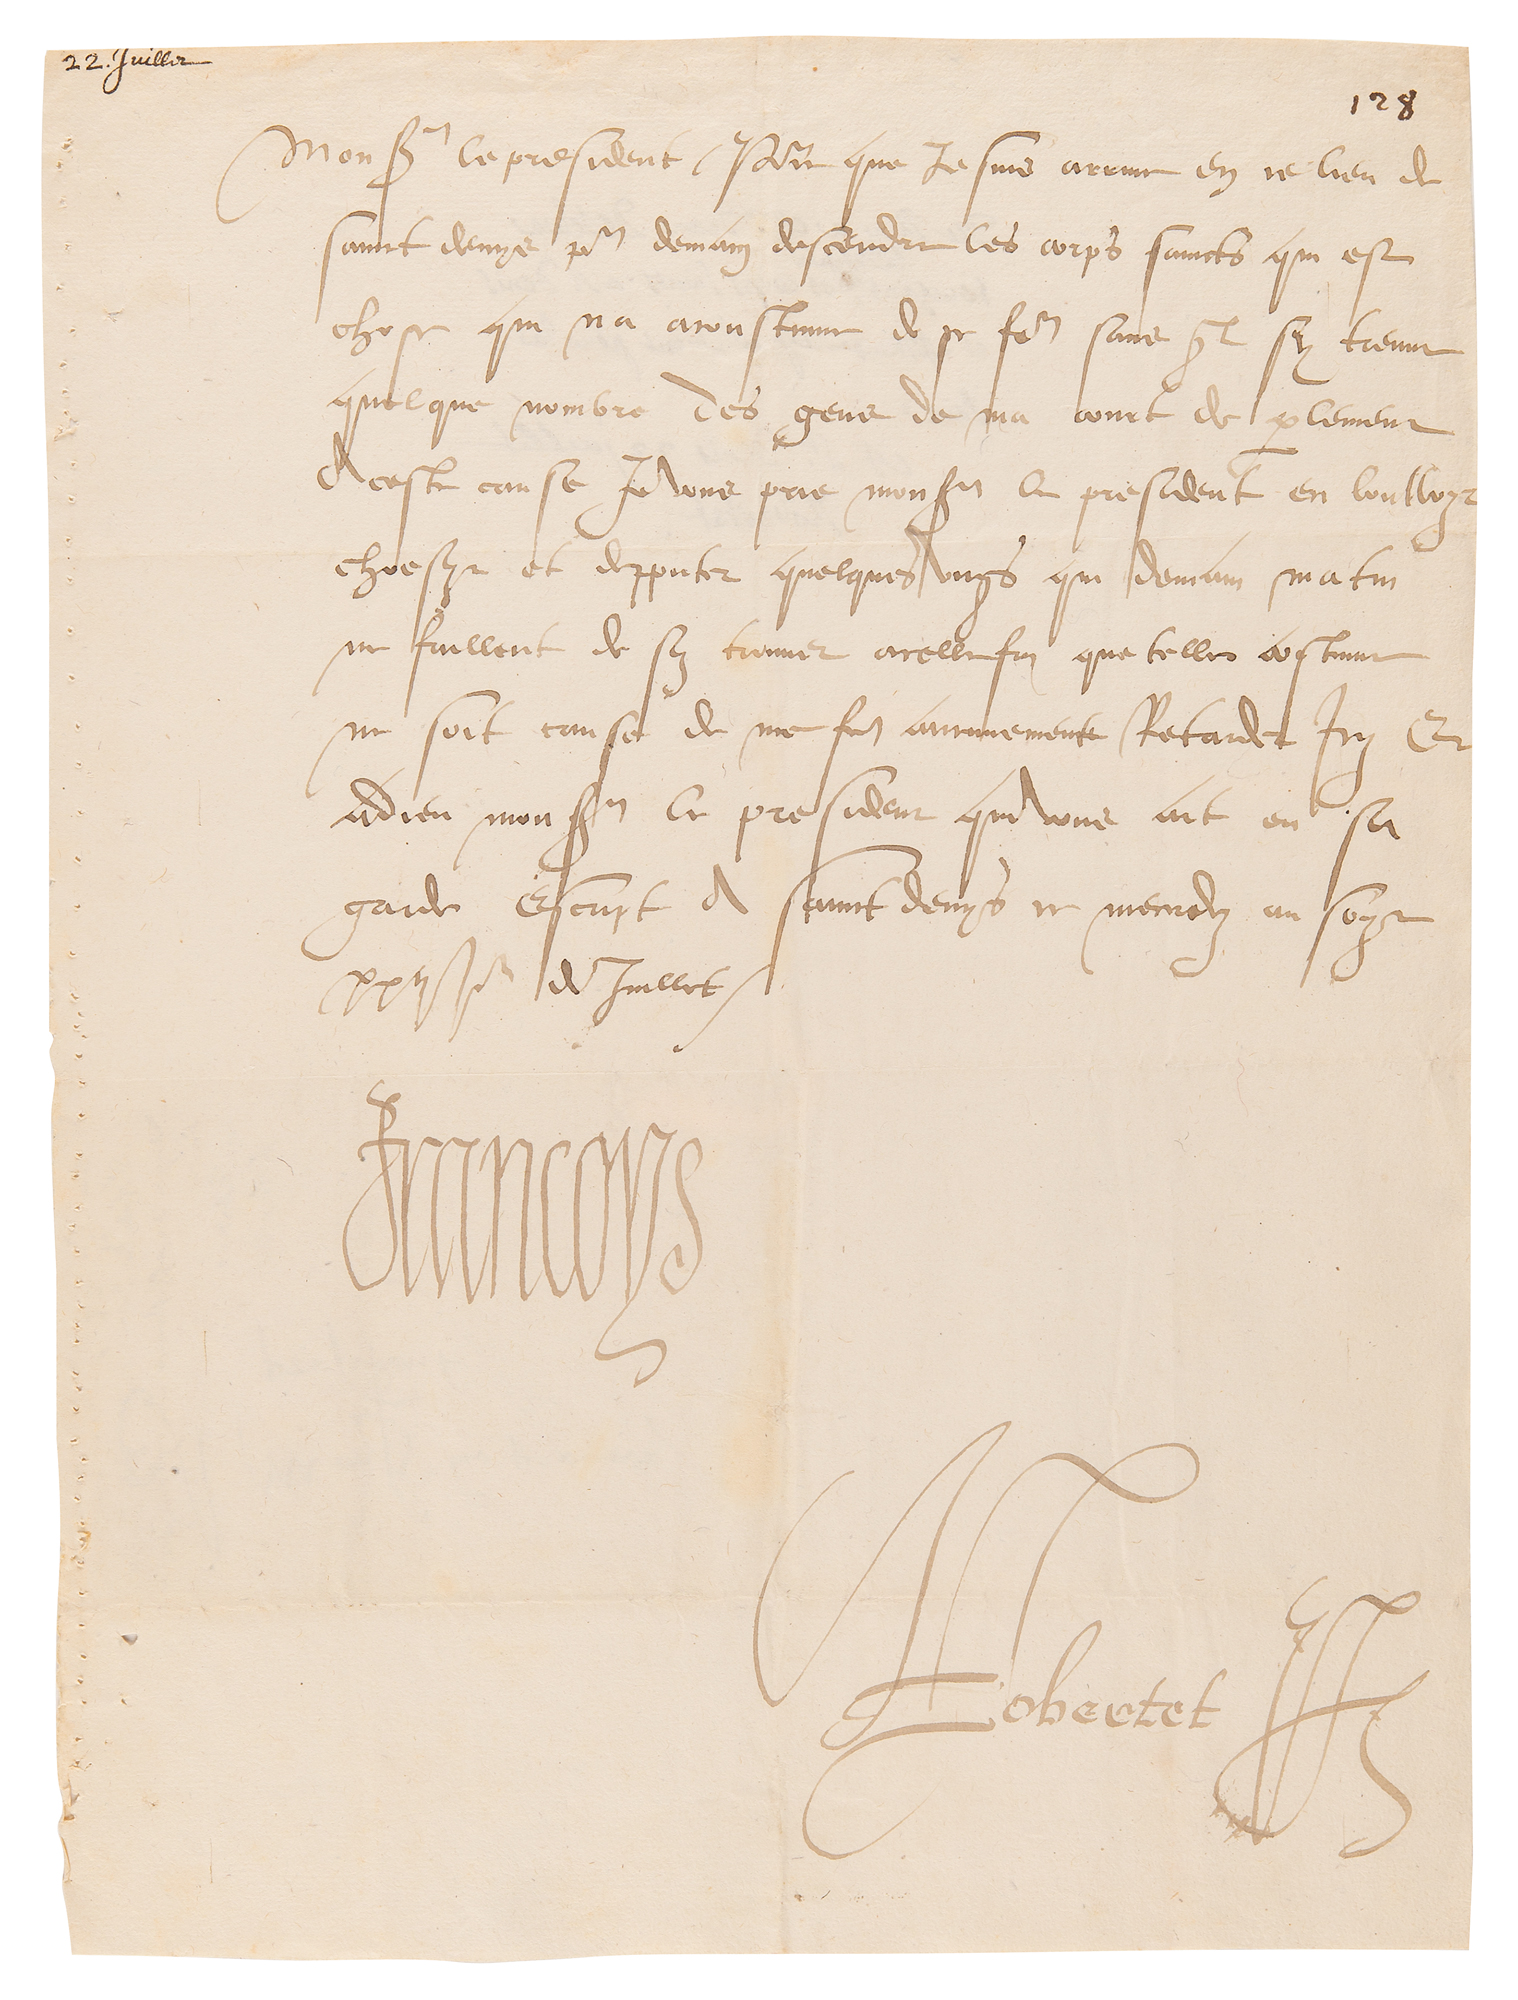 22. Juillet
128
Monsr le president / Pour ce que Je suis arrive en ce lieu de
sainct denys por demain descendre les corps saincts qui est
chose qui na acoustume de se fere sans ql sy treuve
quelque nombre des gens de ma court de plement
A ceste cause Je vous prie monsr le president en voulloyr
choesyr et depputer quelques ungs qui demain matin
ne faillent de sy trouver a celle fin que telle costume
ne soit cause de me fere aucunement Retarder Icy Et
adieu monsr le president qui vous ait en sa
garde Escript A sainct denys ce mecredy au soyr
xxij me de Juillet /
Francoys
Robertet